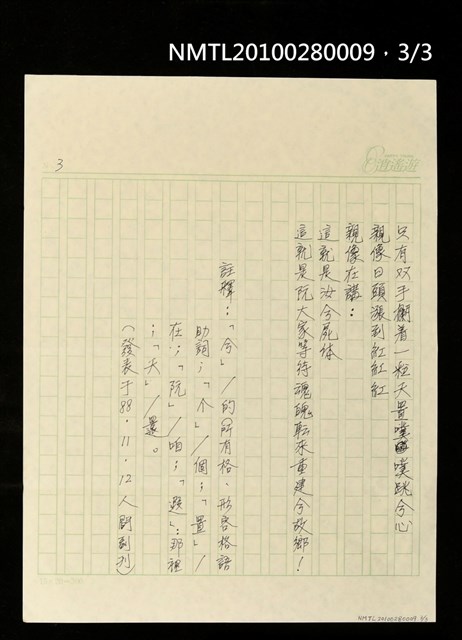 NMTL20100280009，3/3
3
逍遙遊
只有双手捫着一粒大置噗噗跳兮心
親像日頭漲到紅紅紅
親像在講：
這就是汝兮屍体
這就是阮大家等待魂魄転來重建兮故鄉！
註釋：「兮」／的所有格、形容格語
助詞；「个」／個；「置」／
在；「阮」／咱；「遐」：那裡
；「夭」／還。
（發表于88．11．12人間副刊）
NMTL20100280009 3/3